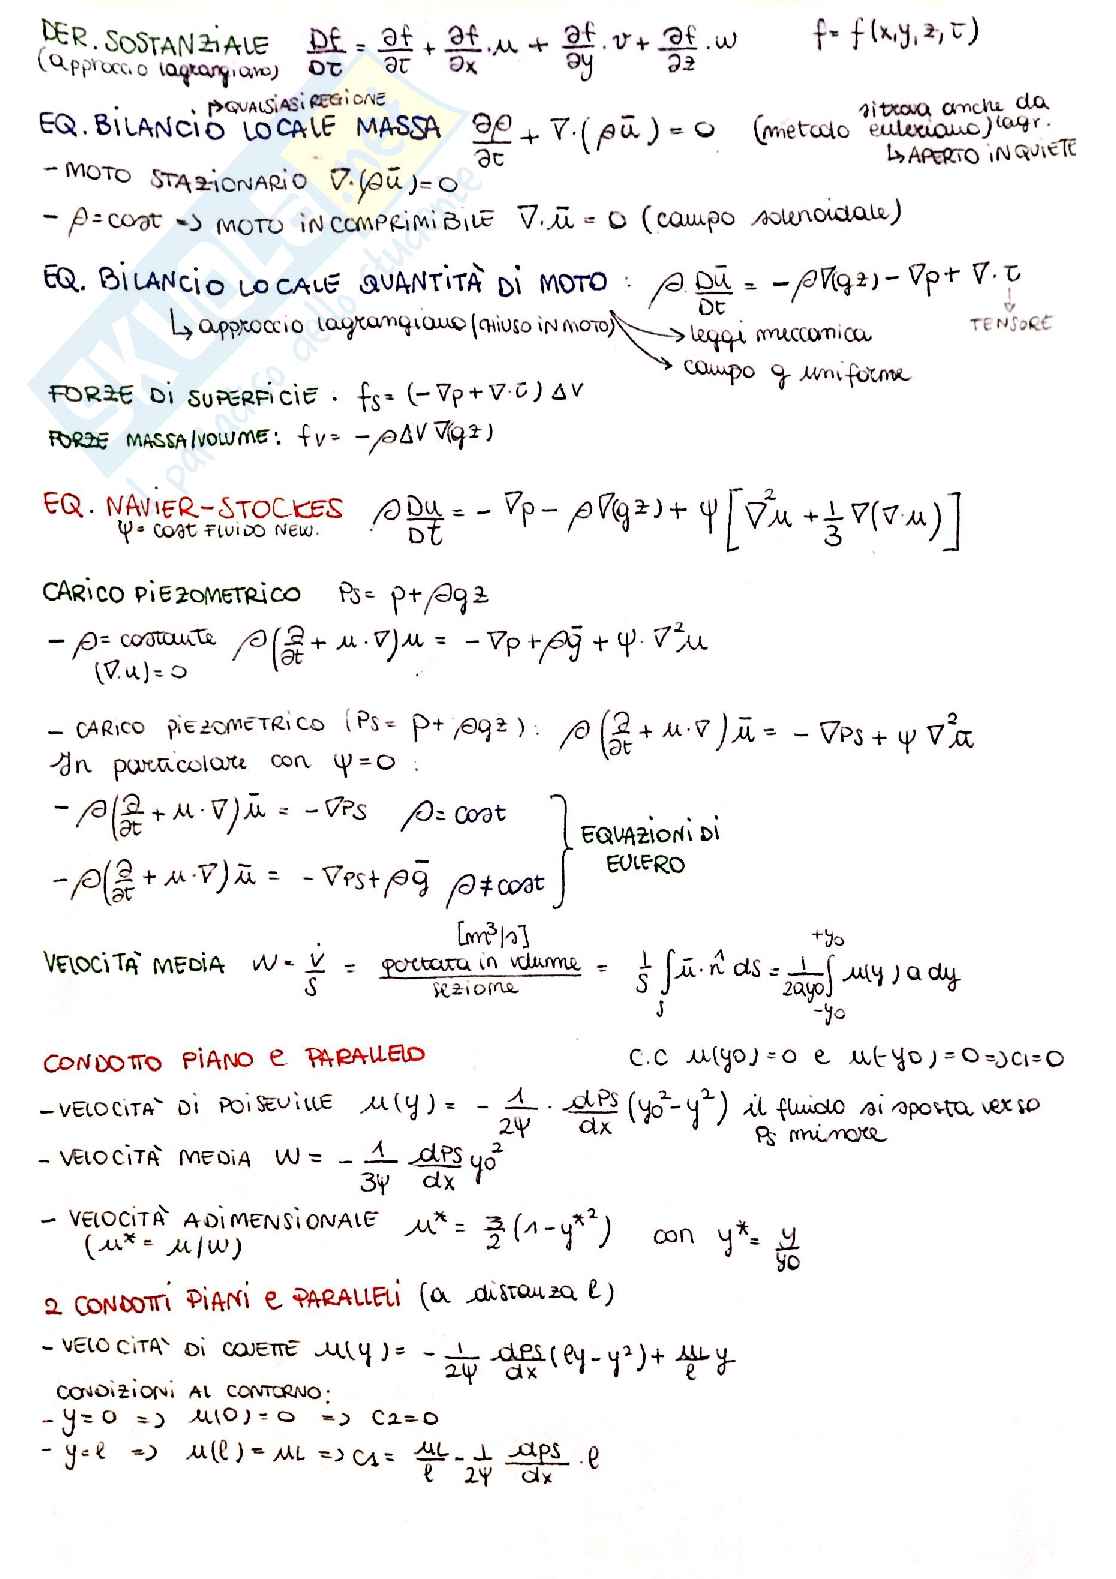 DER. SOSTANZIALE Df/Dτ = ∂f/∂τ + ∂f/∂x · u + ∂f/∂y · v + ∂f/∂z · w f = f(x,y,z,τ)
(approccio lagrangiano)
↳ QUALSIASI REGIONE
EQ. BILANCIO LOCALE MASSA ∂ρ/∂τ + ∇·(ρū) = 0 (metodo euleriano) si trova anche da lagr.
↳ APERTO IN QUIETE
- MOTO STAZIONARIO ∇·(ρū)=0
- ρ=cost => MOTO INCOMPRIMIBILE ∇·ū = 0 (campo solenoidale)
EQ. BILANCIO LOCALE QUANTITÀ DI MOTO : ρ Dū/Dt = -ρ∇(gz) - ∇p + ∇·τ
↓ TENSORE
↳ approccio lagrangiano (CHIUSO IN MOTO) → leggi meccanica
→ campo g uniforme
FORZE DI SUPERFICIE : fs = (-∇p + ∇·τ) ΔV
FORZE MASSA/VOLUME: fv = -ρΔV ∇(gz)
EQ. NAVIER-STOCKES ρ Du/Dt = - ∇p - ρ∇(gz) + ψ[∇²u + 1/3 ∇(∇·u)]
ψ= COST FLUIDO NEW.
CARICO PIEZOMETRICO Ps = p+ρgz
- ρ= costante ρ(∂/∂t + u·∇)u = -∇p + ρḡ + ψ·∇²u
(∇.u)=0
- CARICO PIEZOMETRICO (Ps= p+ρgz): ρ(∂/∂t + u·∇)ū = -∇Ps + ψ∇²ū
In particolare con ψ=0 :
- ρ(∂/∂t + u·∇)ū = -∇Ps ρ= cost
EQUAZIONI DI EULERO
- ρ(∂/∂t + u·∇)ū = -∇Ps + ρḡ ρ≠cost
VELOCITÀ MEDIA W = V̇/S = portata in volume [m³/s] / sezione = 1/S ∫_S ū·n̂ ds = 1/2ay0 ∫_-y0^+y0 u(y) a dy
CONDOTTO PIANO e PARALLELO C.C u(y0)=0 e u(-y0)=0 => C1=0
- VELOCITA' DI POISEVILLE u(y) = - 1/2ψ · dPs/dx (y0² - y²) il fluido si sposta verso
Ps minore
- VELOCITÀ MEDIA W = - 1/3ψ dPs/dx y0²
- VELOCITÀ ADIMENSIONALE u* = 3/2 (1-y*²) con y* = y/y0
(u* = u/w)
2 CONDOTTI PIANI e PARALLELI (a distanza l)
- VELOCITA' DI COUETTE u(y) = - 1/2ψ dPs/dx (ly - y²) + uL/l y
CONDIZIONI AL CONTORNO:
- y=0 => u(0)=0 => C2=0
- y=l => u(l)=uL => C1= uL/l - 1/2ψ dPs/dx · l
SKUOLA.net
il paradiso dello studente